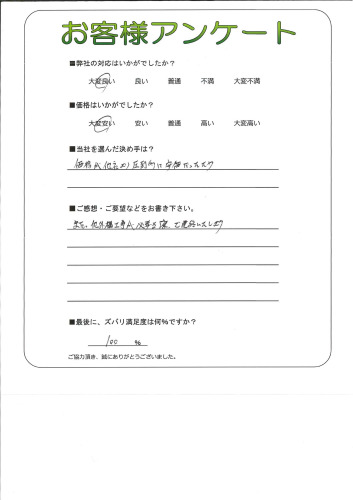 お客様アンケート
■弊社の対応はいかがでしたか?
大変良い 良い 普通 不満 大変不満
■価格はいかがでしたか?
大変安い 安い 普通 高い 大変高い
■当社を選んだ決め手は?
価格が他社より圧倒的に安価だった
■ご感想・ご要望などをお書き下さい。
また、他外構工事が必要な際、ご連絡いたします
■最後に、ズバリ満足度は何%ですか?
100 %
ご協力頂き、誠にありがとうございました。